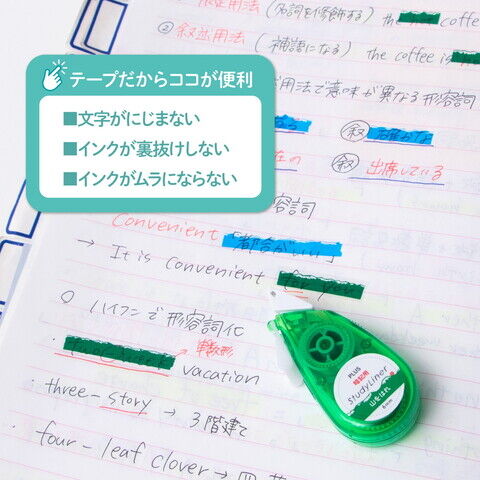 限定用法(名詞を修飾する) the hot coffee
② 叙述用法(補語になる) the coffee is
テープだからココが便利
■文字がにじまない
■インクが裏抜けしない
■インクがムラにならない
用法で意味が異なる形容詞
叙 確かな
在の 叙 出席している
容詞
Convenient 「都合がいい」
→ It is convenient for you
○ ハイフンで形容詞化
単数形
vacation
・three-story → 3階建て
・four-leaf clover → 四葉
PLUS
暗記用
StudyLiner
6mm